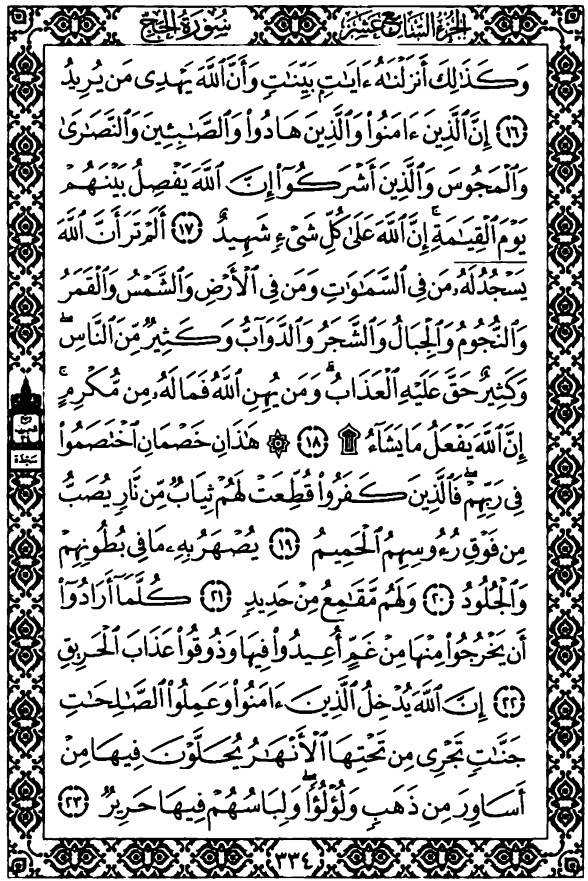 الجزء السابع عشر سورة الحج
وَكَذَٰلِكَ أَنزَلْنَٰهُ ءَايَٰتٍۭ بَيِّنَٰتٍ وَأَنَّ ٱللَّهَ يَهْدِى مَن يُرِيدُ
١٦ إِنَّ ٱلَّذِينَ ءَامَنُوا۟ وَٱلَّذِينَ هَادُوا۟ وَٱلصَّٰبِـِٔينَ وَٱلنَّصَٰرَىٰ
وَٱلْمَجُوسَ وَٱلَّذِينَ أَشْرَكُوٓا۟ إِنَّ ٱللَّهَ يَفْصِلُ بَيْنَهُمْ
يَوْمَ ٱلْقِيَٰمَةِ ۚ إِنَّ ٱللَّهَ عَلَىٰ كُلِّ شَىْءٍ شَهِيدٌ ١٧ أَلَمْ تَرَ أَنَّ ٱللَّهَ
يَسْجُدُ لَهُۥ مَن فِى ٱلسَّمَٰوَٰتِ وَمَن فِى ٱلْأَرْضِ وَٱلشَّمْسُ وَٱلْقَمَرُ
وَٱلنُّجُومُ وَٱلْجِبَالُ وَٱلشَّجَرُ وَٱلدَّوَآبُّ وَكَثِيرٌ مِّنَ ٱلنَّاسِ ۖ
وَكَثِيرٌ حَقَّ عَلَيْهِ ٱلْعَذَابُ ۗ وَمَن يُهِنِ ٱللَّهُ فَمَا لَهُۥ مِن مُّكْرِمٍ ۚ
إِنَّ ٱللَّهَ يَفْعَلُ مَا يَشَآءُ ۩ ١٨ ۞ هَٰذَانِ خَصْمَانِ ٱخْتَصَمُوا۟
فِى رَبِّهِمْ ۖ فَٱلَّذِينَ كَفَرُوا۟ قُطِّعَتْ لَهُمْ ثِيَابٌ مِّن نَّارٍ يُصَبُّ
مِن فَوْقِ رُءُوسِهِمُ ٱلْحَمِيمُ ١٩ يُصْهَرُ بِهِۦ مَا فِى بُطُونِهِمْ
وَٱلْجُلُودُ ٢٠ وَلَهُم مَّقَٰمِعُ مِنْ حَدِيدٍ ٢١ كُلَّمَآ أَرَادُوٓا۟
أَن يَخْرُجُوا۟ مِنْهَا مِنْ غَمٍّ أُعِيدُوا۟ فِيهَا وَذُوقُوا۟ عَذَابَ ٱلْحَرِيقِ
٢٢ إِنَّ ٱللَّهَ يُدْخِلُ ٱلَّذِينَ ءَامَنُوا۟ وَعَمِلُوا۟ ٱلصَّٰلِحَٰتِ
جَنَّٰتٍ تَجْرِى مِن تَحْتِهَا ٱلْأَنْهَٰرُ يُحَلَّوْنَ فِيهَا مِنْ
أَسَاوِرَ مِن ذَهَبٍ وَلُؤْلُؤًا ۖ وَلِبَاسُهُمْ فِيهَا حَرِيرٌ ٢٣
سجدة
٣٣٤